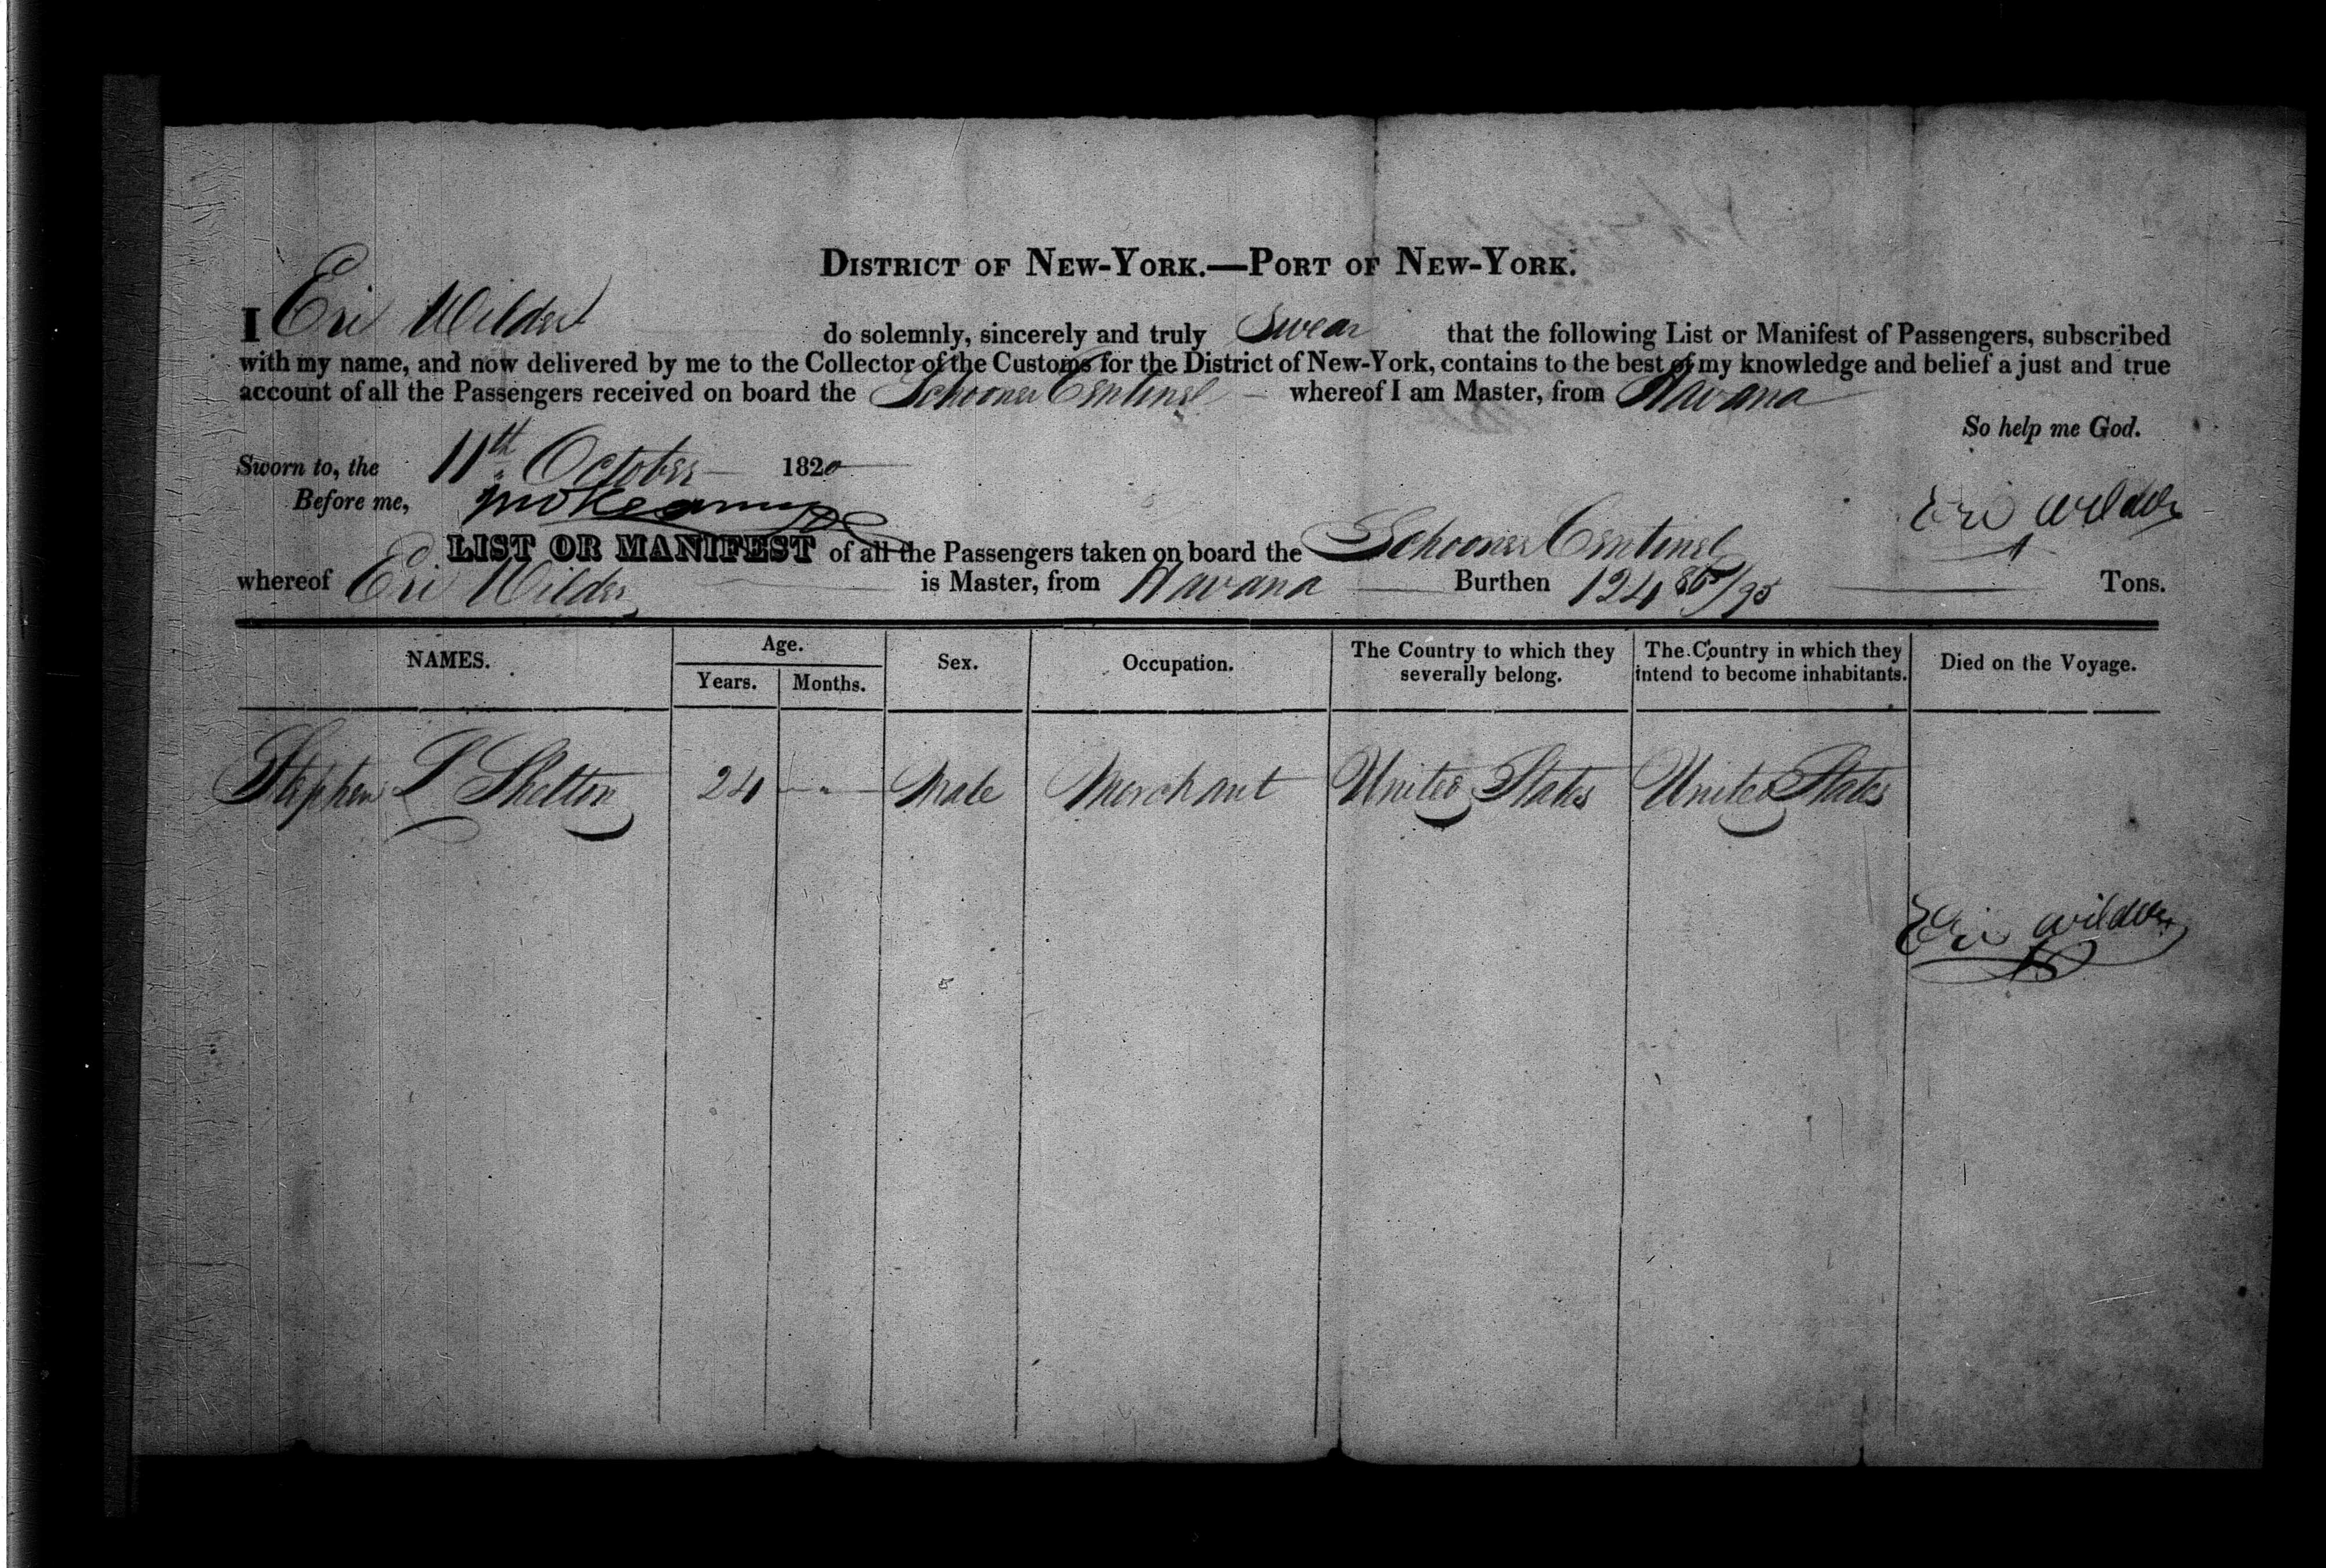 DISTRICT OF NEW-YORK.—PORT OF NEW-YORK.
I Eri Wilder do solemnly, sincerely and truly Swear that the following List or Manifest of Passengers, subscribed
with my name, and now delivered by me to the Collector of the Customs for the District of New-York, contains to the best of my knowledge and belief a just and true
account of all the Passengers received on board the Schooner Centinel whereof I am Master, from Havana
So help me God.
Sworn to, the 11th October 1820
Before me,
Eri Wilder
LIST OR MANIFEST of all the Passengers taken on board the Schooner Centinel
whereof Eri Wilder is Master, from Havana Burthen 124 86/95 Tons.
NAMES. Age. Years. Months. Sex. Occupation. The Country to which they severally belong. The Country in which they intend to become inhabitants. Died on the Voyage.
Stephen L Shelton 24 Male Merchant United States United States
Eri Wilder